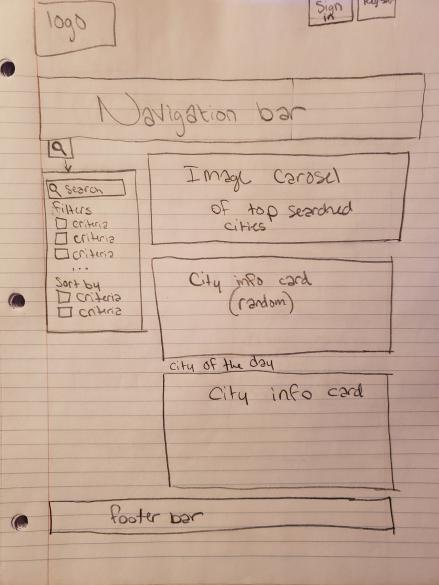 logo
Sign
in
Navigation bar
search
filters
criteria
criteria
criteria
...
Sort by
Criteria
criteria
Image Carosel
of top searched
cities
City info card
(random)
city of the day
City info card
footer bar